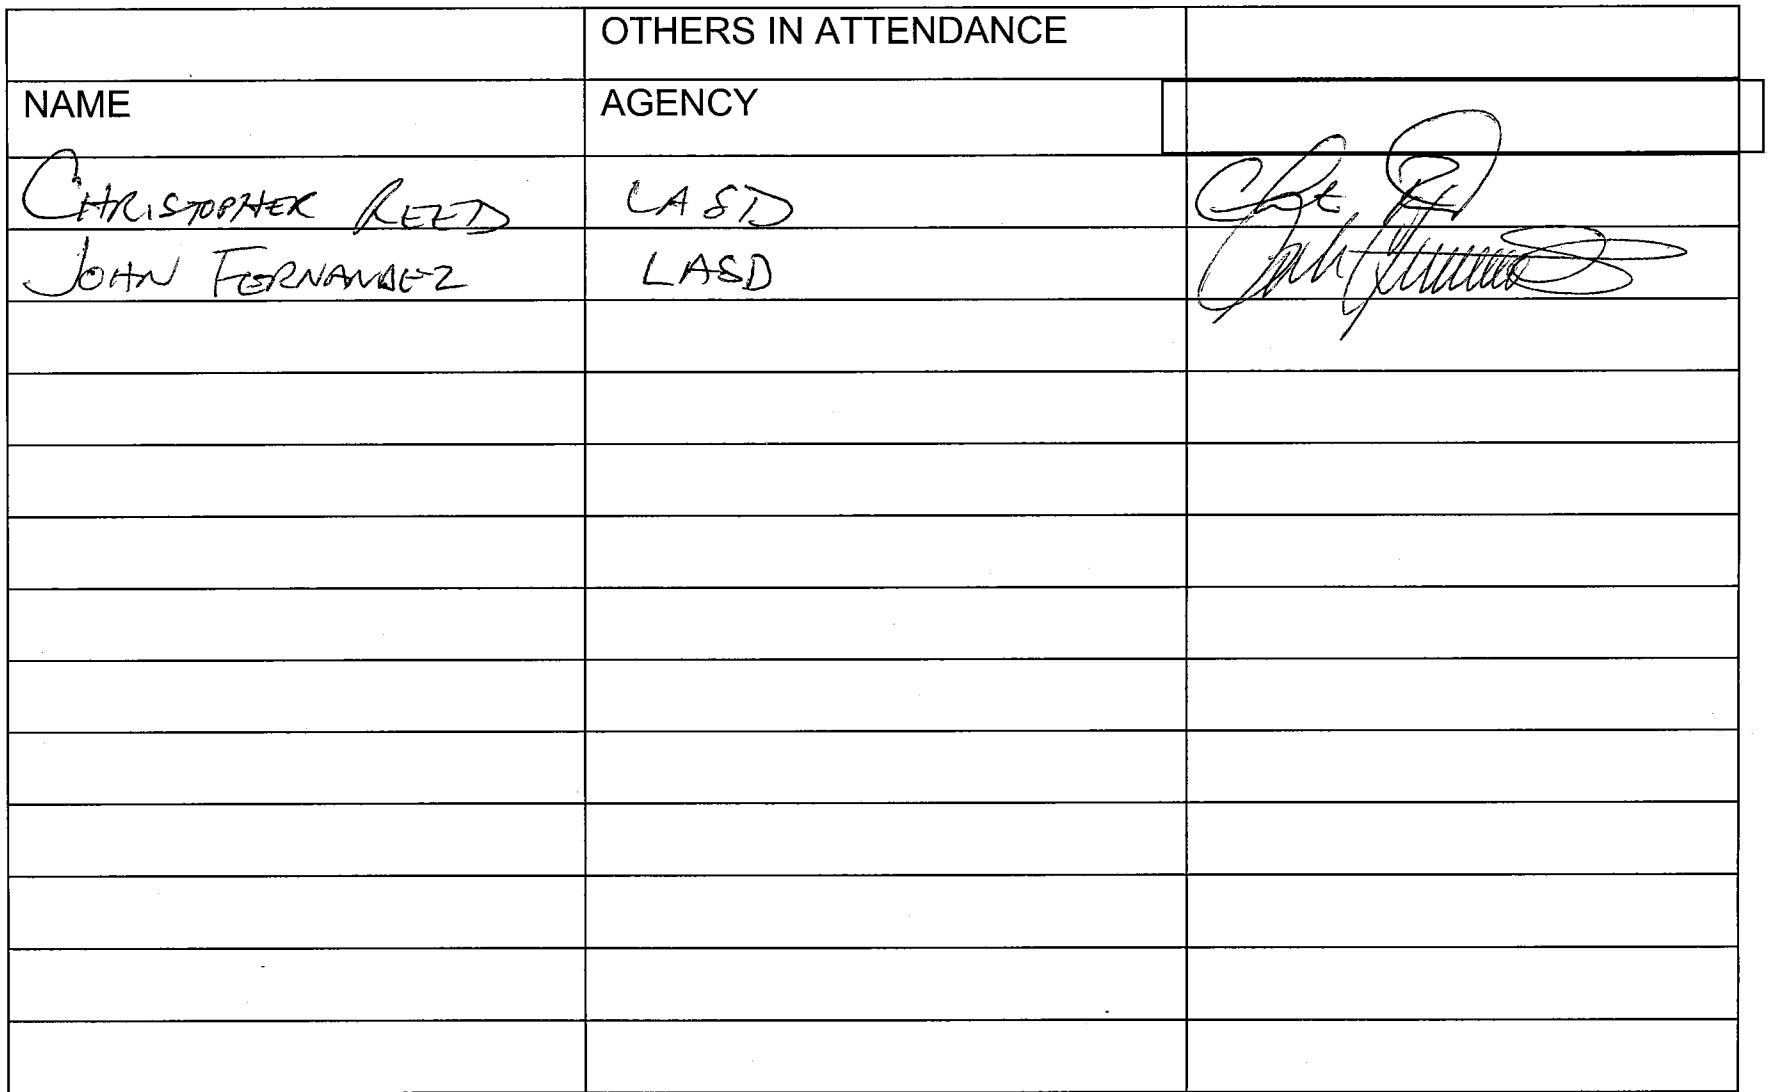 OTHERS IN ATTENDANCE
NAME AGENCY
CHRISTOPHER REED LASD
JOHN FERNANDEZ LASD